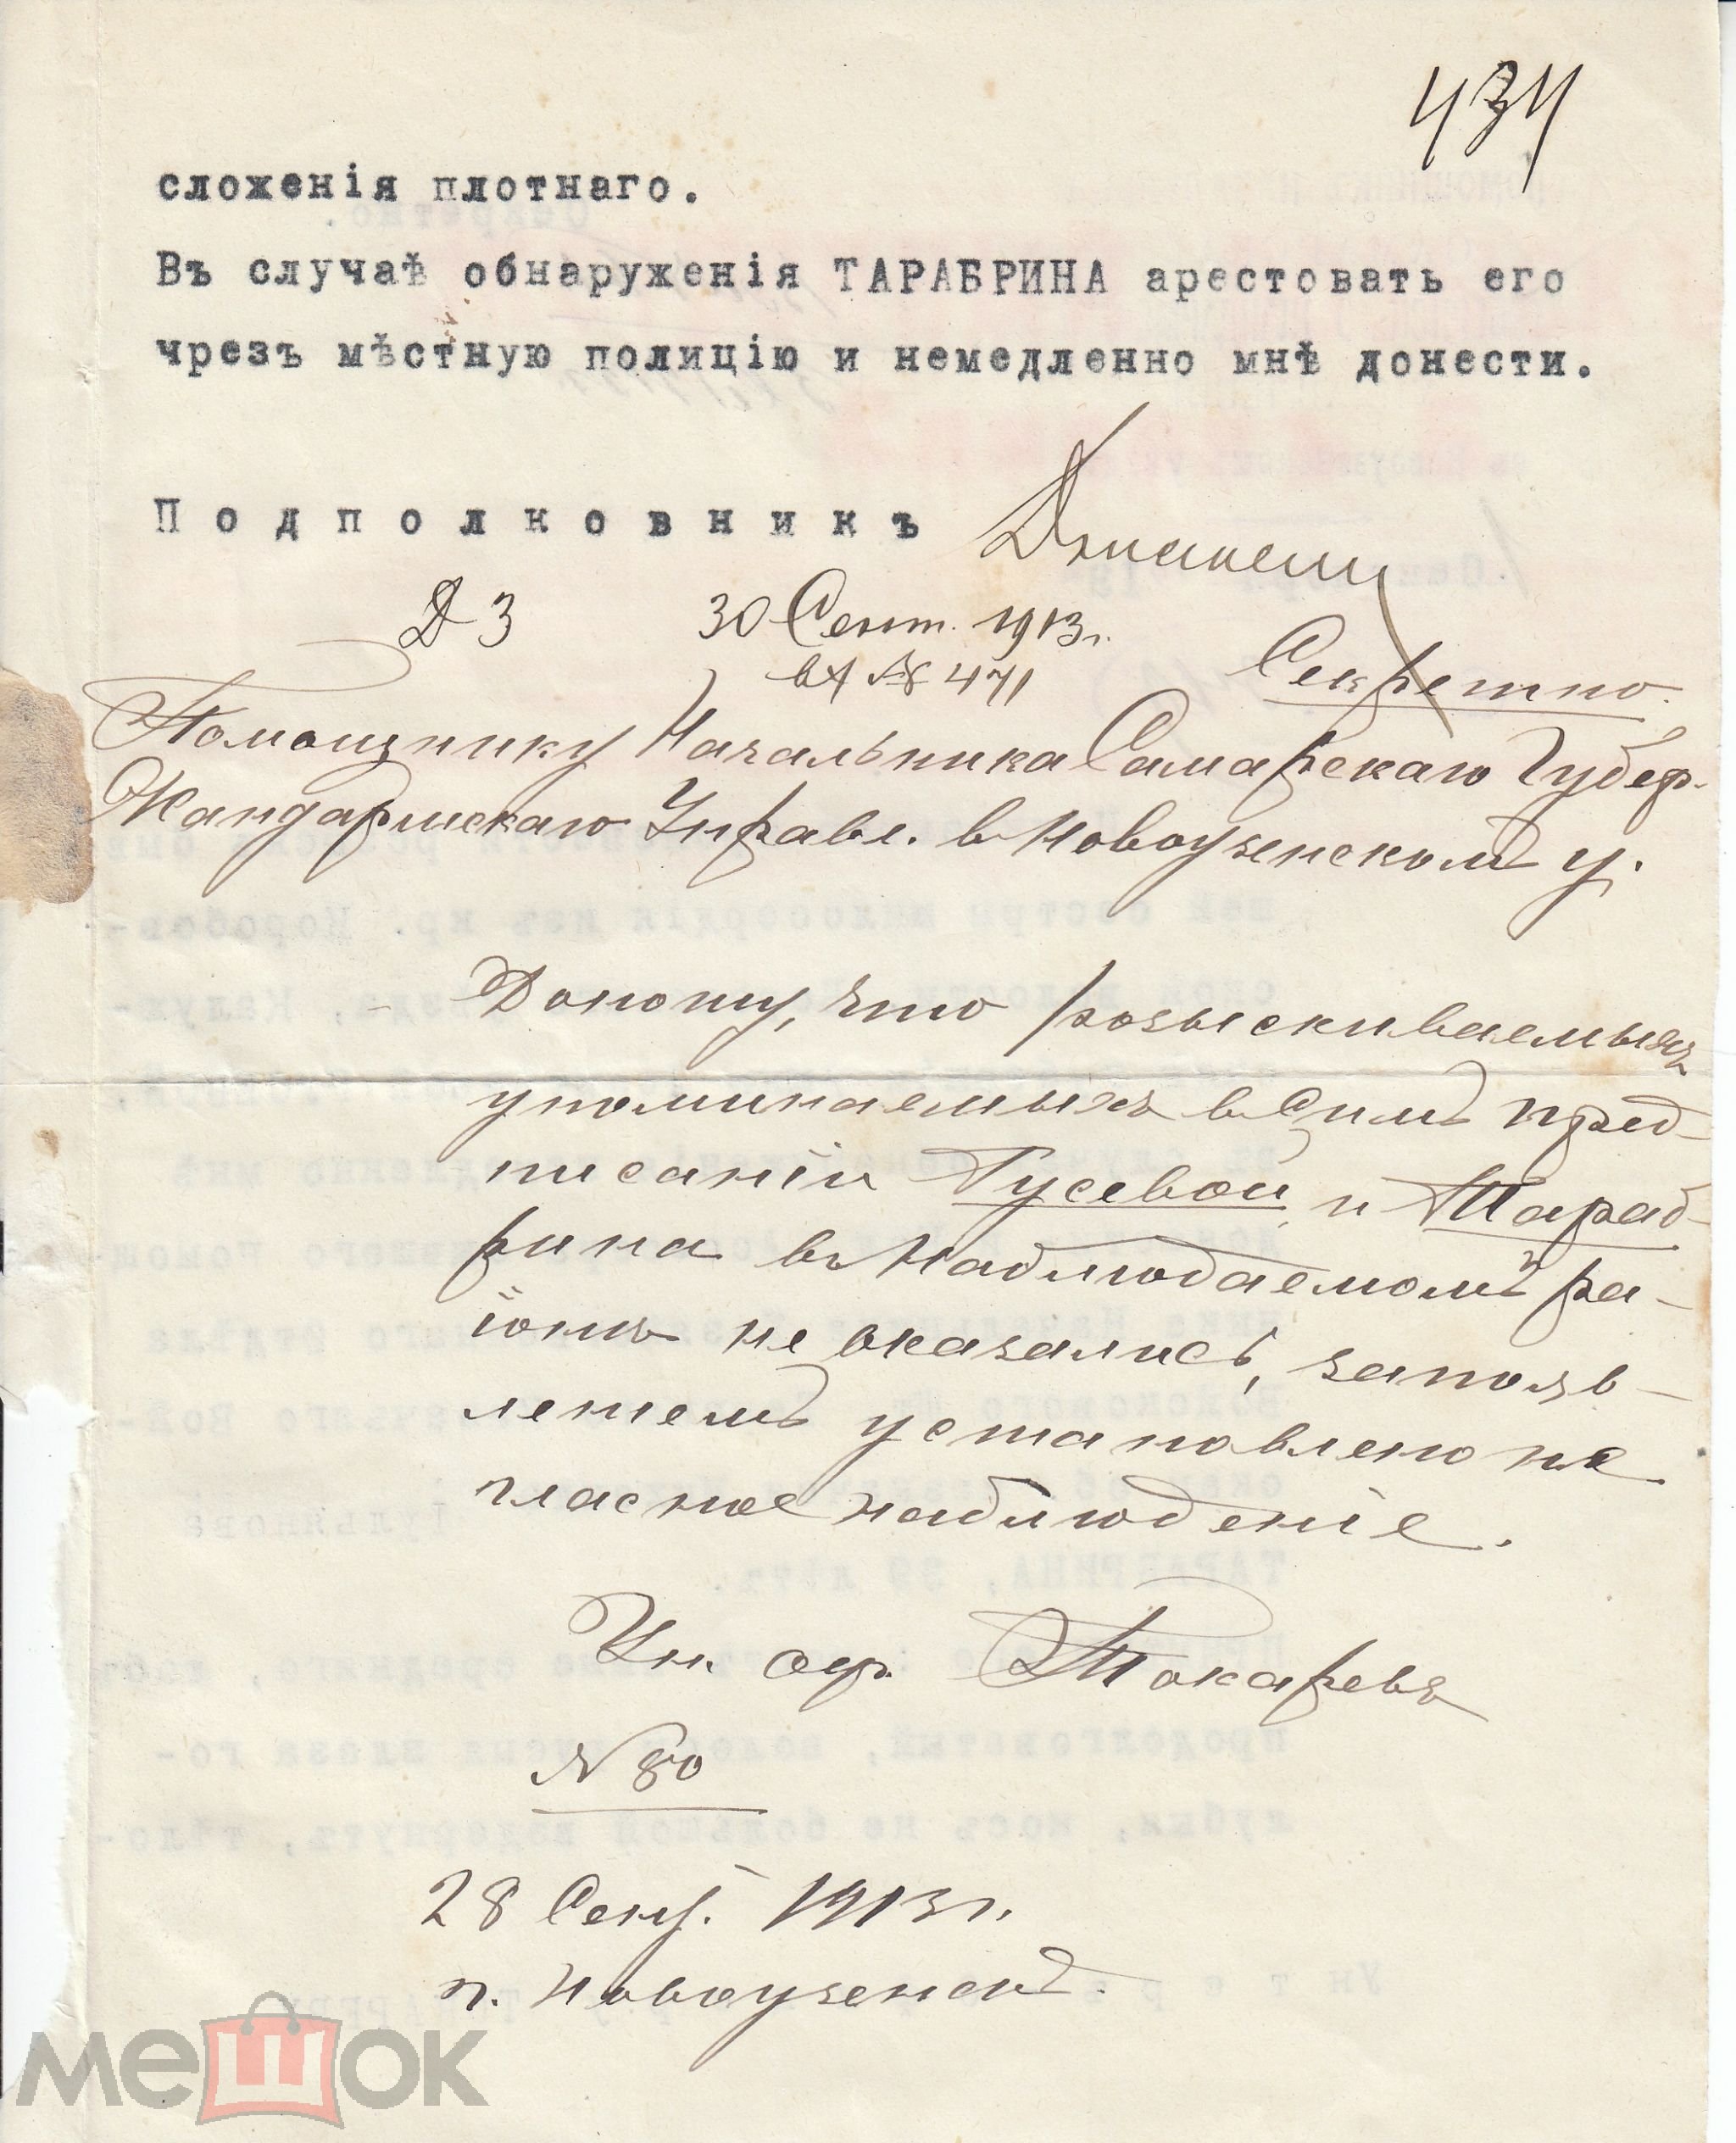 434
сложенія плотнаго.
Въ случаѣ обнаруженія ТАРАБРИНА арестовать его
чрезъ мѣстную полицію и немедленно мнѣ донести.
Подполковникъ
Д 3 30 Сент. 1913 г.
вх № 471
Секретно.
Помощнику Начальника Самарскаго Губер.
Жандармскаго Управл. в Новоузенскомъ у.
Доношу, что розыскиваемыхъ
упоминаемыхъ в симъ пред-
писаніи Гусевой и Тараб-
рина въ наблюдаемомъ ра-
іонѣ не оказались, за появ-
леніемъ установлено не
гласное наблюденіе.
Ун. оф. Токаревъ
№ 80
28 Сент. 1913 г.
г. Новоузенскъ.
мешок